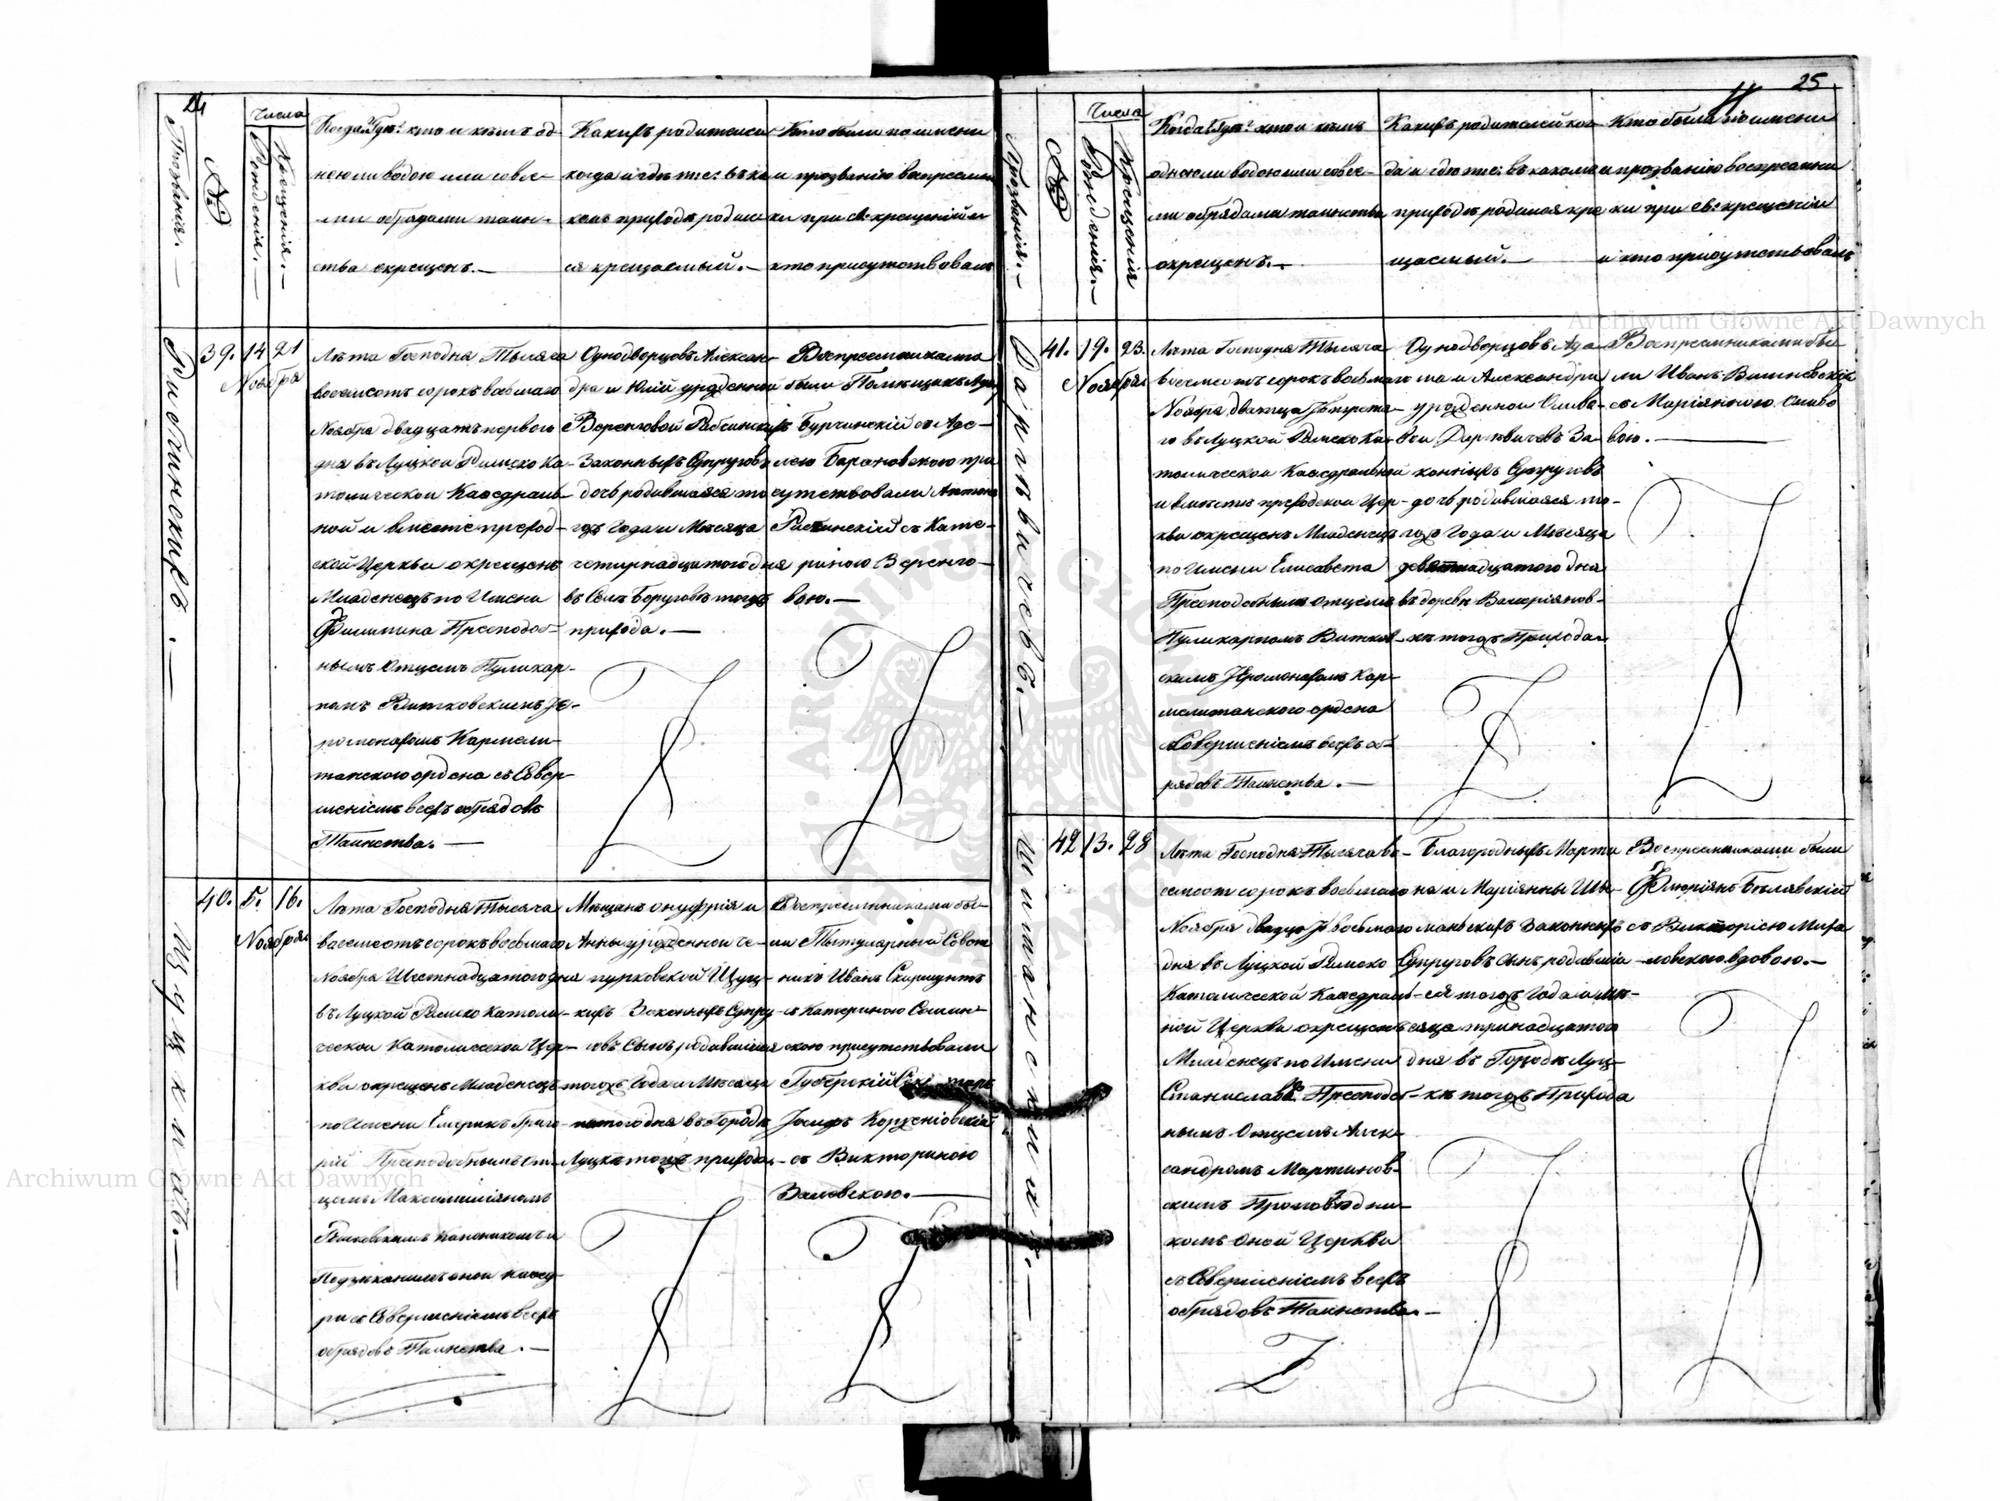 24
Прозвѣнія. —
№
Числа
Рожденія. —
Крещенія. —
Когда? Гдѣ? кто и кѣмъ од
ною ли водою или со все-
ми обрядами таин-
ства окрещенъ. —
Какихъ родителей
когда и гдѣ тіе: въ ка
комъ приходѣ родил
ся крещаемый. —
Кто были по имени
и прозванію воспреемни
ки при св. крещеніи и
кто присутствовалъ
39. 14 21
Ноября
Лѣта Господня Тысяча
восемсотъ сорокъ восьмаго
Ноября двадцать перваго
дня въ Луцкой Римско Ка-
толической Каѳедраль-
ной и вместѣ приход-
ской Церкви окрещенъ
Младенецъ по Имени
Филипина Преподоб-
нымъ Отцемъ Пуликар-
помъ Витковскимъ Іе-
ромонахомъ Кармели-
танскаго ордена съ Совер-
шеніемъ всехъ обрядовъ
Таинства. —
Однодворцовъ Алексан-
дра и Юліи урожденной
Веренговой
Законныхъ Супруговъ
дочь родившаяся то
годъ Года и Месяца
четырнадцатого дня
въ Селѣ тогожъ
прихода. —
Воспреемниками
были Помѣщикъ
Бурчинскій съ Аде-
лею Барановскою при
сутствовали Антоній
съ Кате-
риною Веренго-
вою. —
40. 5. 16.
Ноября
Щуцкихъ. —
Лѣта Господня Тысяча
восемсотъ сорокъ восьмаго
Ноября Шестнадцатого дня
въ Луцкой Римско Католи-
ческой Католической Цер-
кви окрещенъ Младенецъ
по Имени Емерикъ Григо-
рій Преподобнымъ От-
цемъ Максимиліяномъ
Каноникомъ и
оной Каѳед-
ри съ Совершеніемъ всехъ
обрядовъ Таинства. —
Мещанъ Онуфрія и
Анны урожденной Че-
пурковской Щуц-
кихъ Законныхъ Супру-
говъ Сынъ родившійся
тогожъ Года и Месяца
пятого дня въ Городѣ
Луцкѣ тогожъ прихода. —
Воспреемниками бы-
ли Тытулярный Совет
никъ Иванъ Скирмунтъ
съ Катериною
скою присутствовали
Губерскій
Іосифъ
съ Викториною
Заловскою. —
25
Прозванія. —
№
Числа
Рожденія. —
Крещенія
Когда? Гдѣ? кто и кѣмъ
одною ли водою или со все-
ми обрядами таинства
окрещенъ. —
Какихъ родителей ког
да и гдѣ тіе: въ какомъ
приходѣ родился кре
щаемый. —
Кто были по имени
и прозванію воспреемни
ки при св: крещеніи
и кто присутствовалъ
41. 19. 23.
Ноября
Даркѣвичовъ. —
Лѣта Господня Тысяча
восемсотъ сорокъ восьмаго
Ноября двадцать третя-
го въ Луцкой Римско Ка-
толической Каѳедральной
и вместѣ приходской Цер-
кви окрещенъ Младенецъ
по Имени Елисавета
Преподобнымъ Отцемъ
Пуликарпомъ Витков-
скимъ Іеромонахомъ Кар-
мелитанского ордена
съ Совершеніемъ всехъ об-
рядовъ Таинства. —
Однодворцовъ Ада
ма и Александри
урожденной Сливо-
вой Даркевичовъ За-
конныхъ Супруговъ
дочь родившаяся то-
гожъ Года и Месяца
девятнадцатого дня
въ деревнѣ Валеріянов-
кѣ тогожъ Прихода. —
Воспреемниками бы
ли Иванъ Вишневскій
съ Маріянною Сливо
вою. —
42 13. 28
Шиманскихъ. —
Лѣта Господня Тысяча во-
семсотъ сорокъ восьмаго
Ноября двадцать восьмаго
дня въ Луцкой Римско
Католической Каѳедраль-
ной Церкви окрещенъ
Младенецъ по Имени
Станиславъ Преподоб-
нымъ Отцемъ Алек-
сандромъ Мартинов-
скимъ Проповѣдни-
комъ Оной Церкви
съ Совершеніемъ всехъ
обрядовъ Таинства. —
Благородныхъ Марти
на и Маріянны Ши-
манскихъ Законныхъ
Супруговъ сынъ родивші-
ся тогожъ Года и Ме-
сяца тринадцатого
дня въ Городѣ Луц-
кѣ тогожъ Прихода
Воспреемниками были
Флюріянъ Белявскій
съ Викторіею Мира
ловскою вдовою. —
Archiwum Główne Akt Dawnych
Archiwum Główne Akt Dawnych